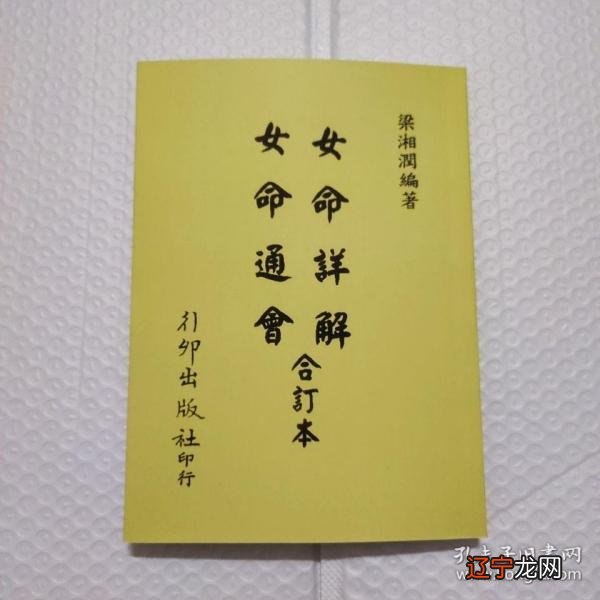 梁湘潤編著
女命詳解
女命通會
合訂本
行卯出版社印行
孔夫子旧书网
辽宁龙网